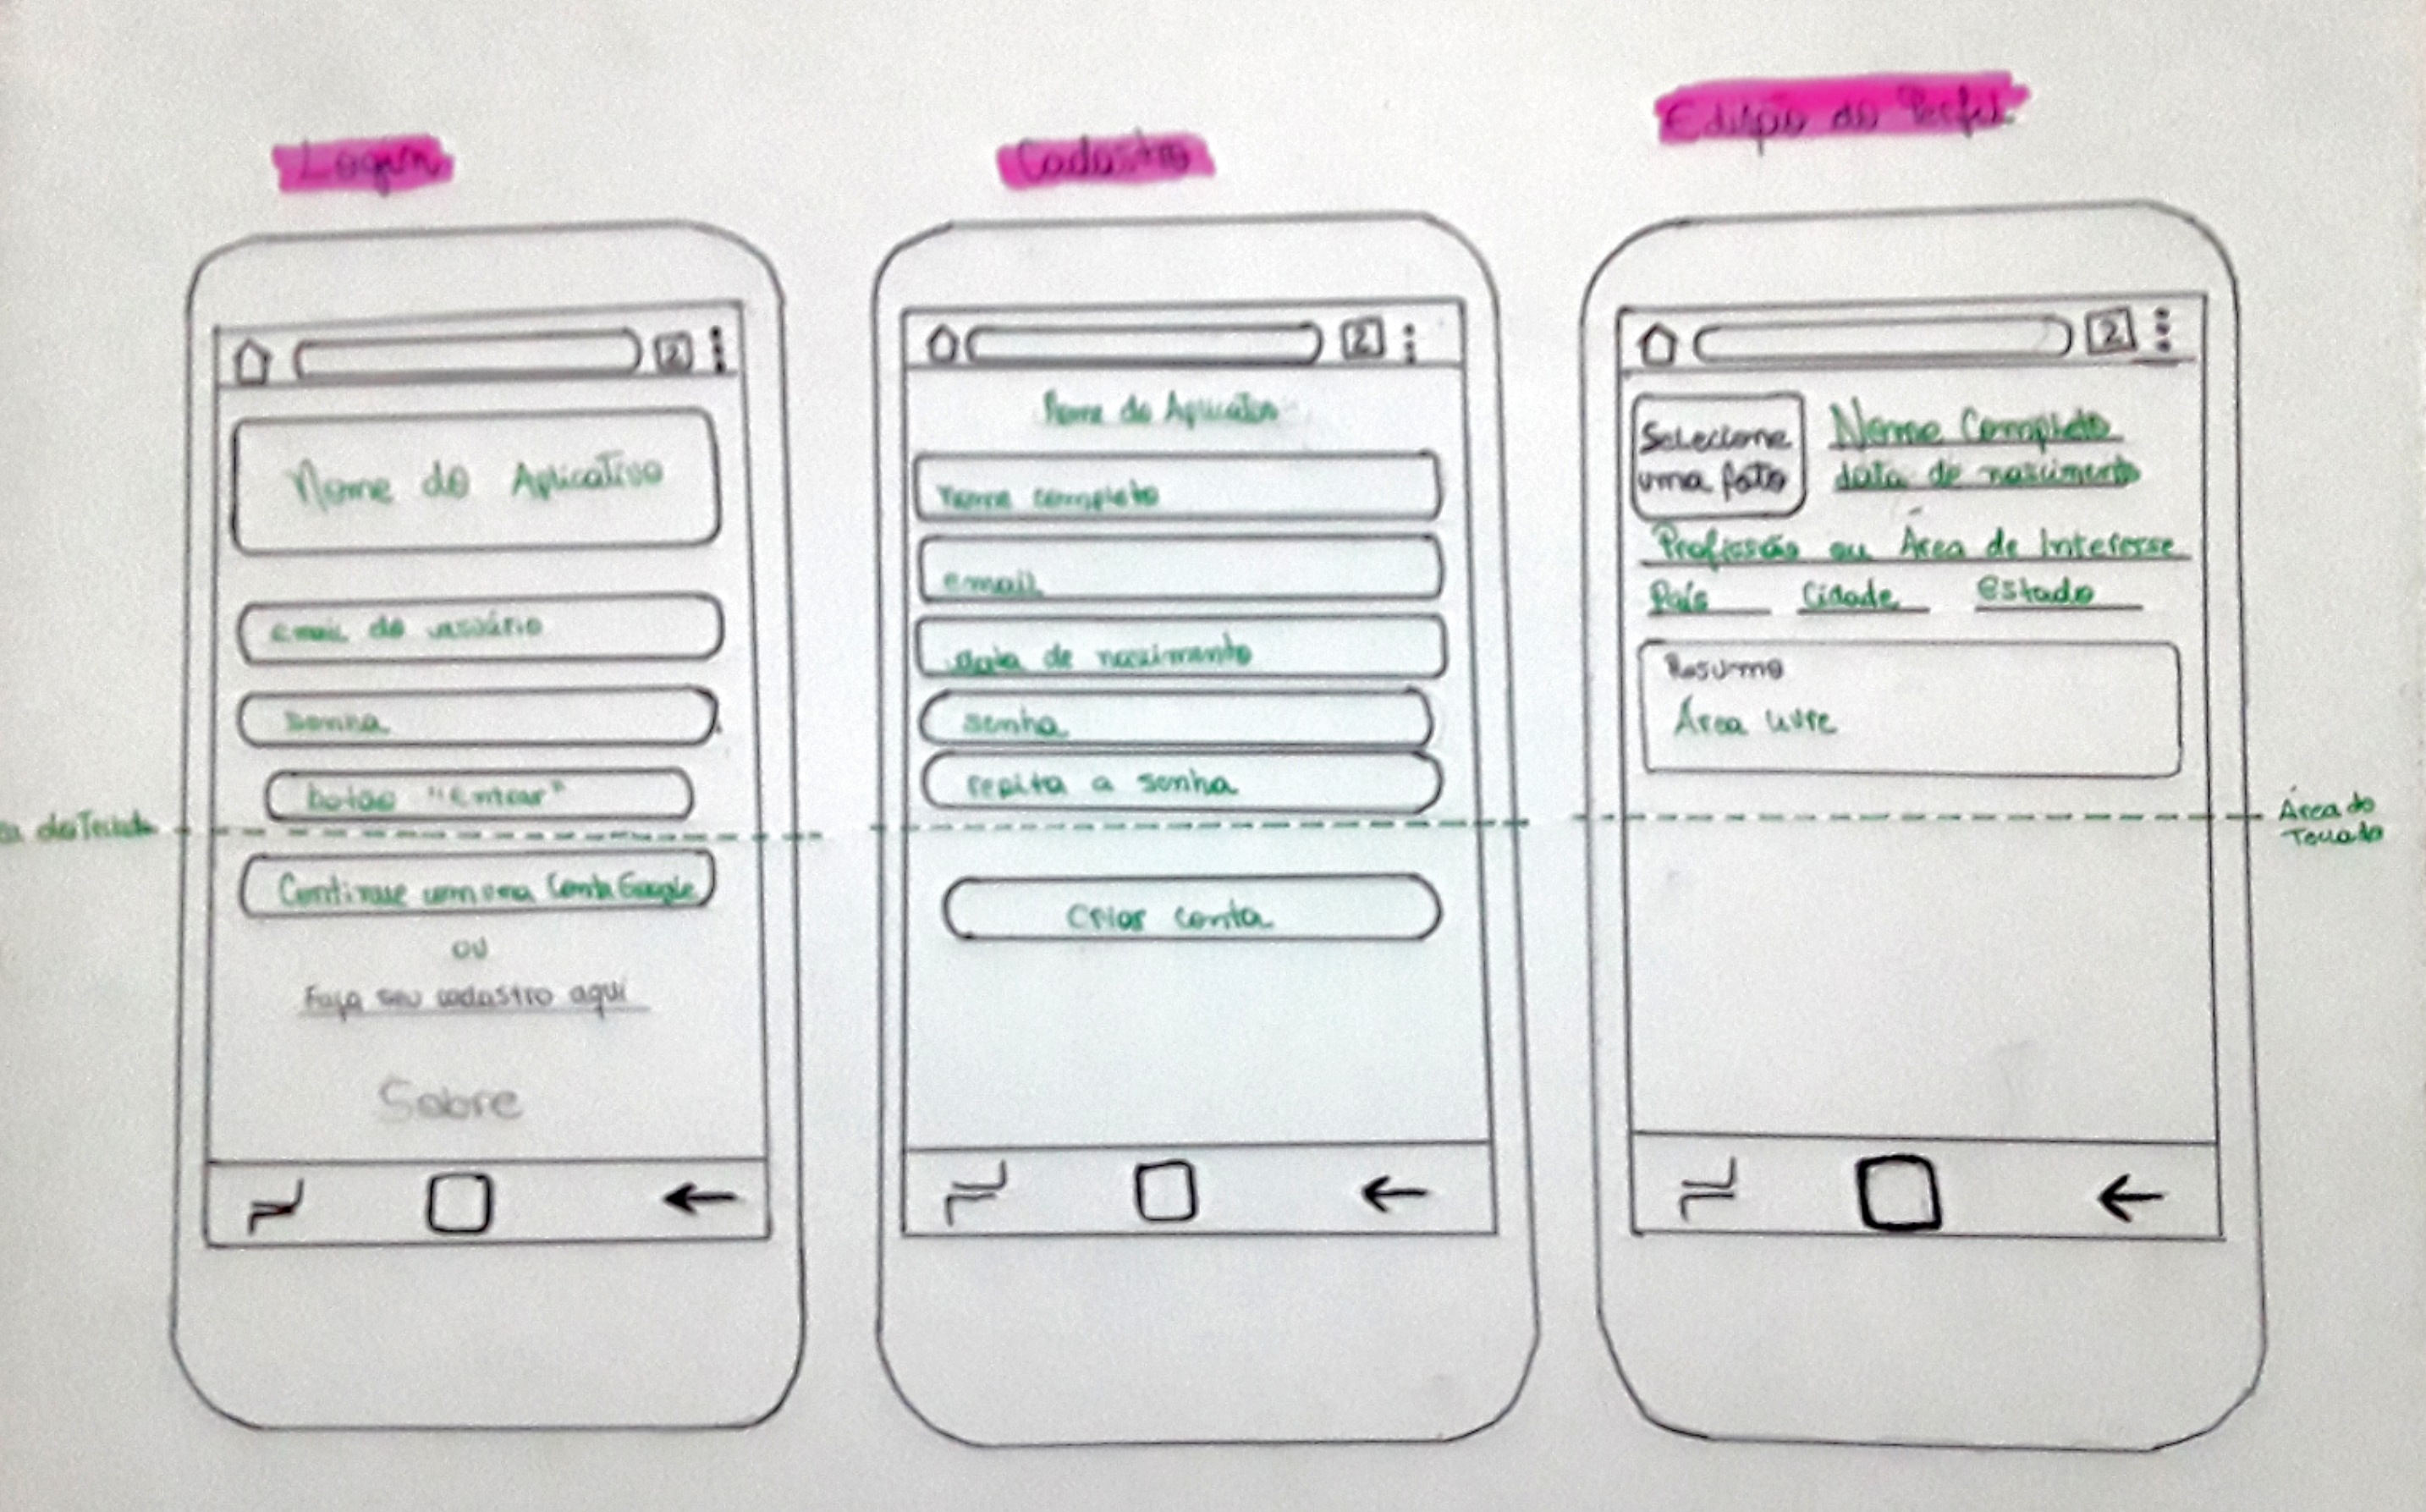 Login
2
Nome do Aplicativo
email do usuário
Senha
botão "Entrar"
do Teclado
Continue com uma Conta Google
ou
Faça seu cadastro aqui
Sobre
Cadastro
2
Nome do Aplicativo
nome completo
email
data de nascimento
senha
repita a senha
Criar conta
Edição do Perfil
2
Selecione
uma foto
Nome Completo
data de nascimento
Profissão ou Área de Interesse
País Cidade Estado
Resumo
Área livre
Área do
Teclado